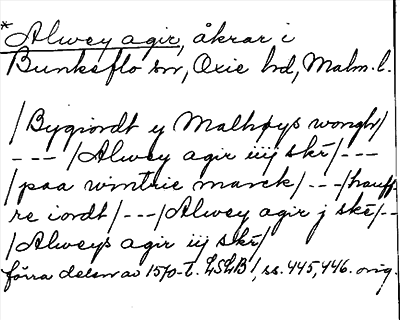 *Alwey agir, åkrar i
Bunkeflo sn, Oxie hd, Malm. l.
/Bygiordt y Malhøys wongh/
--- /Alwey agir iiij skr/---
/paa wintrie marck/---/hauff-
re iordt/---/Alwey agir j skr/--
/Alweys agir iij skr/
förra delen av 1570-t. LSLB 1, ss. 445, 446. orig.